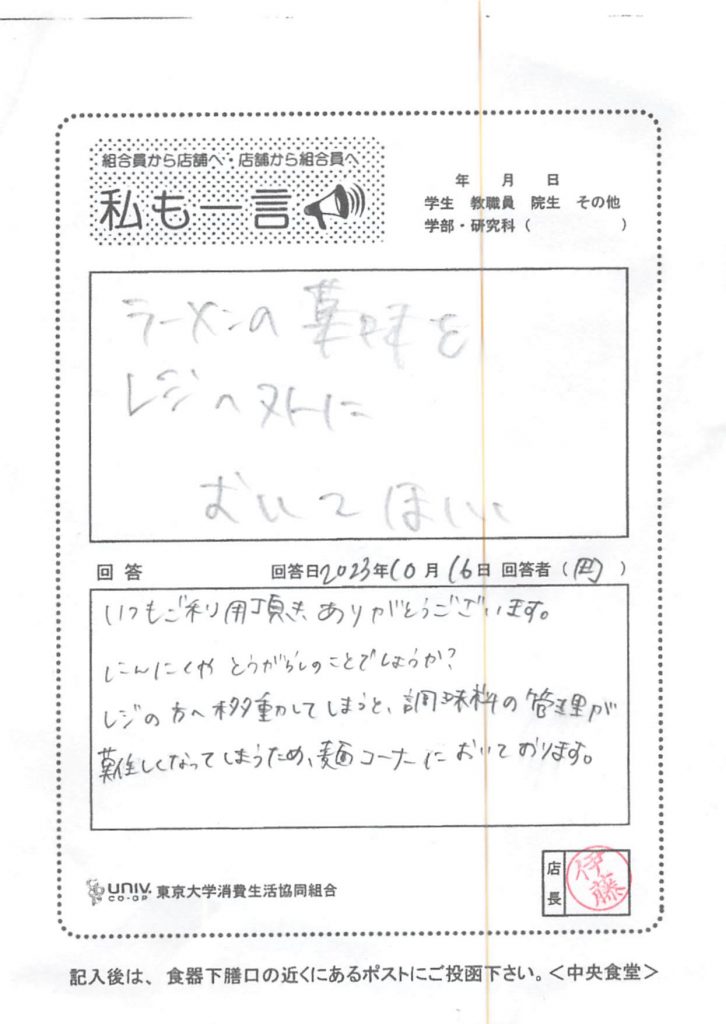 組合員から店舗へ・店舗から組合員へ
私も一言
年 月 日
学生 教職員 院生 その他
学部・研究科( )
ラーメンの薬味を
レジ
おいてほしい
回答 回答日2023年10月16日 回答者( )
いつもご利用頂き ありがとうございます。
にんにくや とうがらしのことでしょうか?
レジの方へ移動してしまうと、調味料の管理が
難しくなってしまうため、麺コーナーにおいております。
店長
伊藤
UNIV. CO-OP 東京大学消費生活協同組合
記入後は、食器下膳口の近くにあるポストにご投函下さい。<中央食堂>